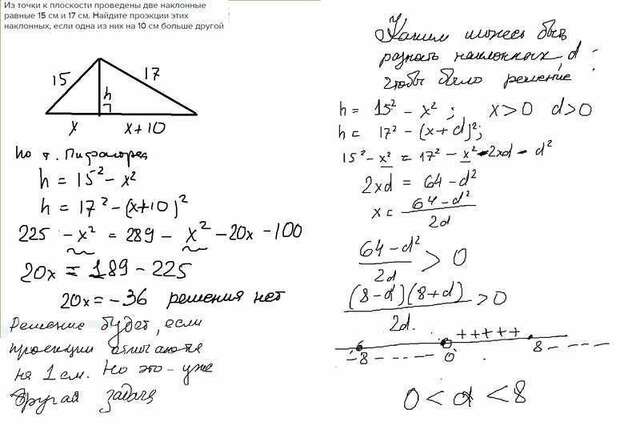 Из точки к плоскости проведены две наклонные
равные 15 см и 17 см. Найдите проэкции этих
наклонных, если одна из них на 10 см больше другой
15
17
h
x
x+10
по т. Пифагора
h = 15² - x²
h = 17² - (x+10)²
225 - x² = 289 - x² - 20x - 100
20x = 189 - 225
20x = -36 решения нет
Решение будет, если
проекции отличаются
на 1 см. Но это - уже
другая задача
Каким может быть
разность наклонных, d
чтобы было решение
h = 15² - x² ; x > 0 d > 0
h = 17² - (x+d)²;
15² - x² = 17² - x² - 2xd - d²
2xd = 64 - d²
x = 64 - d² / 2d
64 - d² / 2d > 0
(8-d)(8+d) / 2d > 0
+++++
-8 - - - - 0 8 - - - -
0 < d < 8